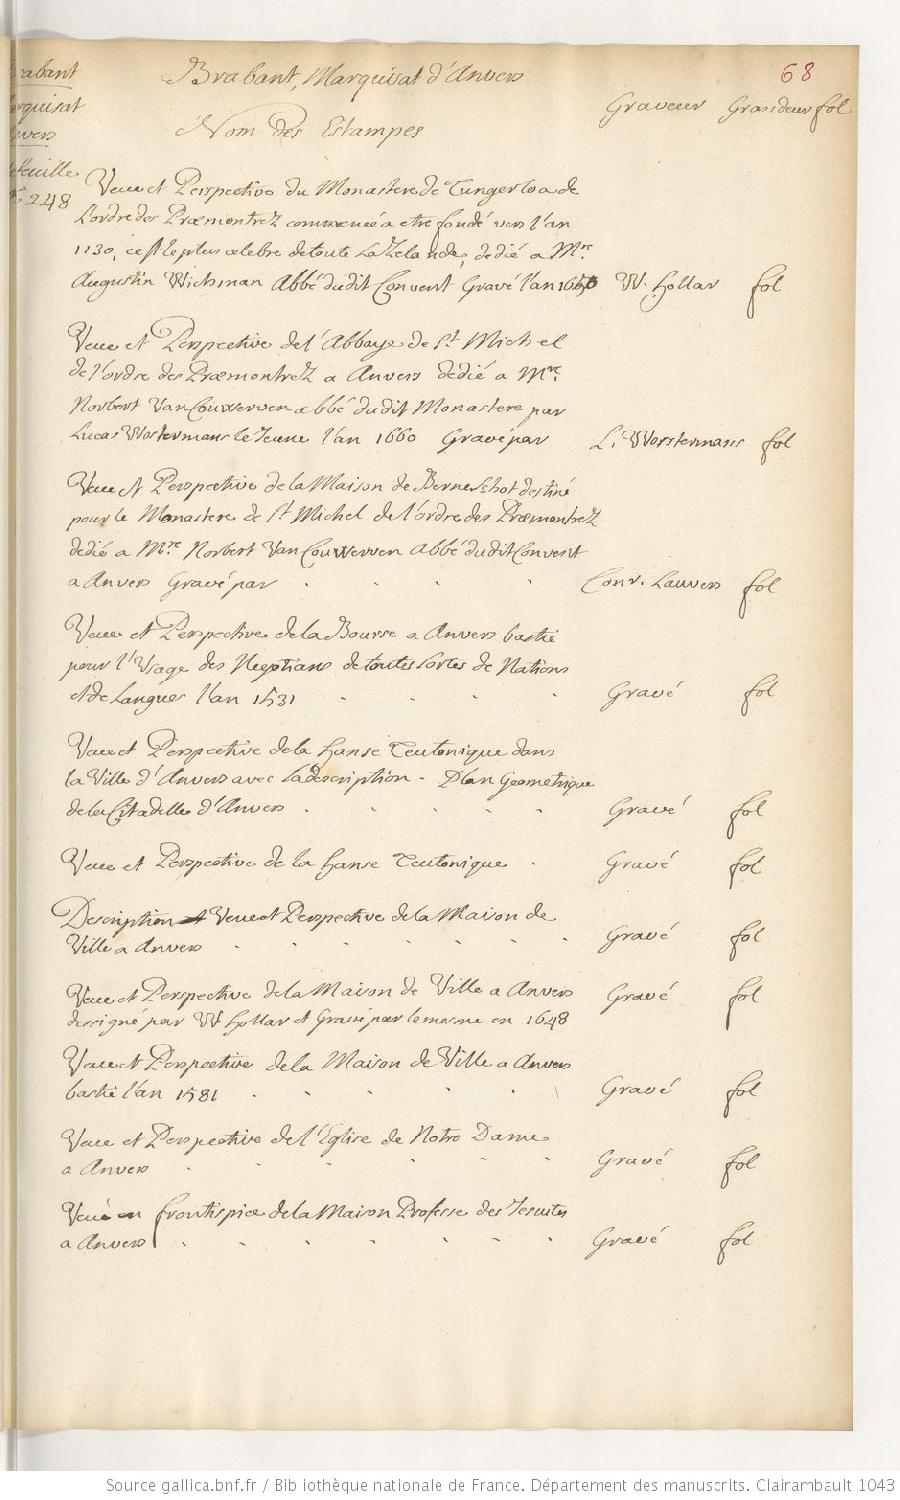 Brabant, Marquisat d'Anvers
68
Graveur Grandeur fol
Nom des Estampes
rabant
rquisat
nvers
tefeuille
248
Veue et Perspective du Monastere de Tungerloa de
L'ordre des Præmontrez commencé a etre fondé vers l'an
1130, c'est le plus celebre de toute la Zelande, dedié a Mre
Augustin Wichman Abbé dudit Convent Gravé l'an 1650 W. Hollar fol
Veue et Perspective de l'Abbaye de St Michel
de l'ordre des Præmontrez a Anvers dedié a Mre
Norbert Van Couwerwen abbé dudit Monastere par
Lucas Vorstermans le Jeune l'an 1660 Gravé par L. Vorstermans fol
Veue et Perspective de la Maison de Berneschot destiné
pour le Monastere de St Michel de l'ordre des Præmontrez
dedié a Mre Norbert Van Couwerwen Abbé dudit Convent
a Anvers Gravé par . . . . Conr. Lauwers fol
Veue et Perspective de la Bourse a Anvers bastie
pour l'Usage des Negotians de toutes sortes de Nations
et de Langues l'an 1531 . . . . Gravé fol
Veue et Perspective de la Hanse Teutonique dans
la Ville d'Anvers avec la description - Plan Geometrique
de la Citadelle d'Anvers . . . . Gravé fol
Veue et Perspective de la Hanse Teutonique . Gravé fol
Description et Veue et Perspective de la Maison de
Ville a Anvers . . . . . . . Gravé fol
Veue et Perspective de la Maison de Ville a Anvers Gravé fol
dessigné par W Hollar et Gravé par le mesme en 1648
Veue et Perspective de la Maison de Ville a Anvers
bastie l'an 1581 . . . . Gravé fol
Veue et Perspective de l'Eglise de Notre Dame
a Anvers . . . . . . Gravé fol
Veue en frontispice de la Maison Professe des Jesuites
a Anvers . . . . . . . Gravé fol
Source gallica.bnf.fr / Bibliothèque nationale de France. Département des manuscrits. Clairambault 1043